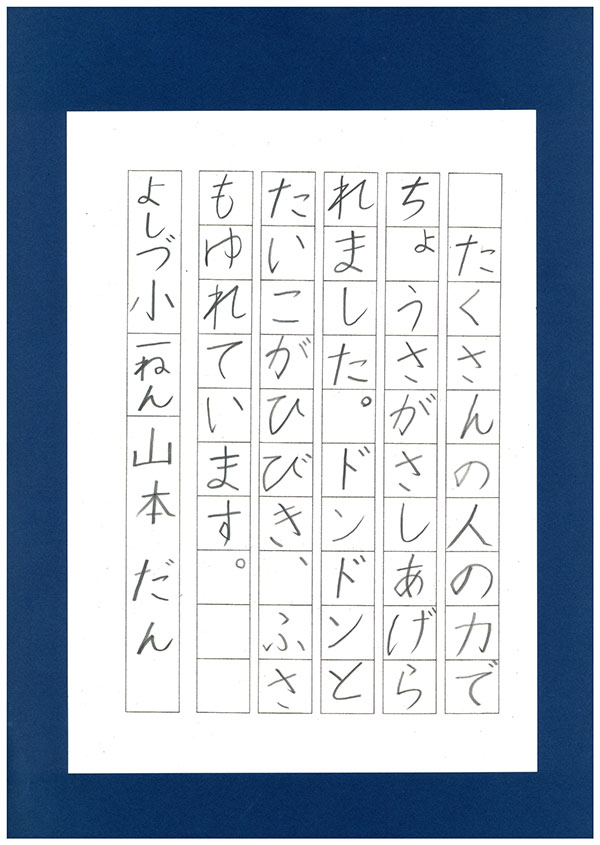 たくさんの人の力で
ちょうさがさしあげら
れました。ドンドンと
たいこがひびき、ふさ
もゆれています。
よしづ小 一ねん 山本 だん